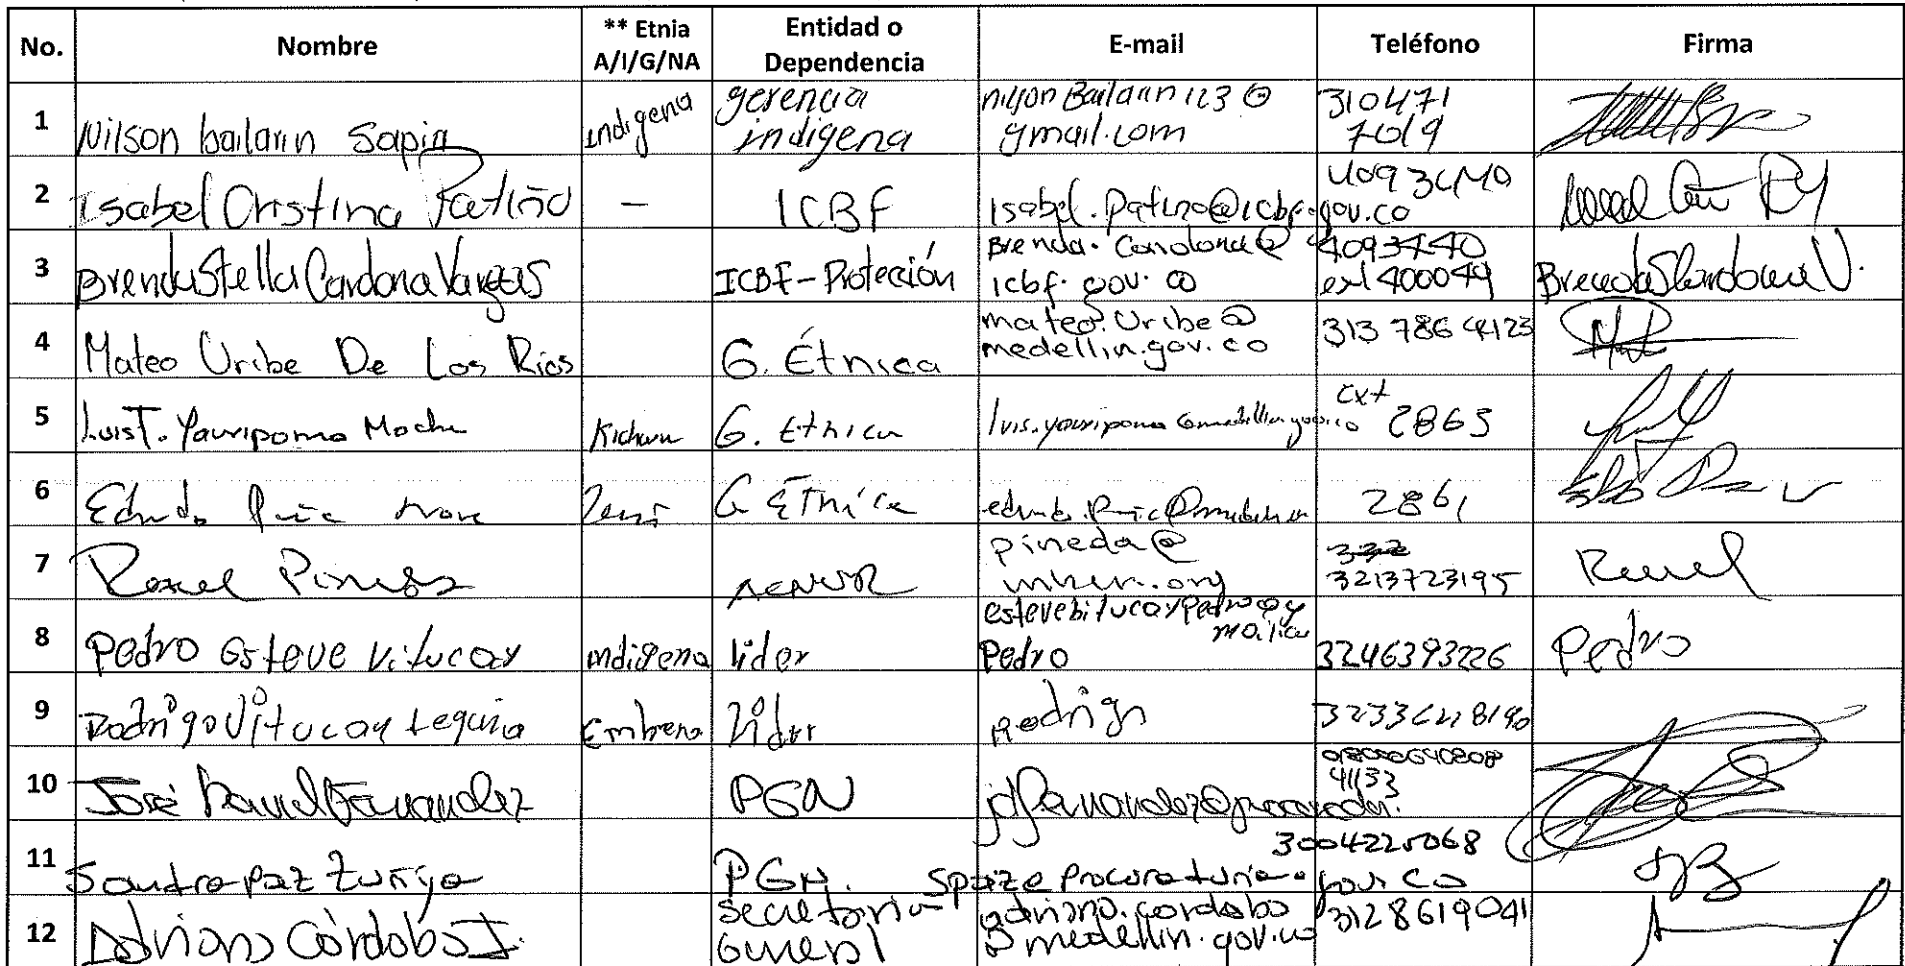 No. Nombre ** Etnia A/I/G/NA Entidad o Dependencia E-mail Teléfono Firma
1 Nilson bailarin Sapia indigena gerencia indigena nilson Bailarin 123 @ gmail.com 310471 7019
2 Isabel Cristina Patiño — ICBF Isabel.Patino@icbf.gov.co
3 Brenda Stella Cardona Vargas ICBF-Protección Brenda.Cardona@ icbf.gov.co 4093440 ext 400049 Brenda S Cardona V.
4 Mateo Uribe De Los Rios G. Étnica mateo.Uribe@ medellin.gov.co 313 786 4123
5 Luis T. Yauripoma Kichwa G. Etnica ext 2865
6 G Etnica 2861
7 ACNUR pineda@ unhcr.org 3213723195
8 Pedro Esteve Vitucay indigena lider estevebitucaypedro@g mail.co Pedro 3246393226 Pedro
9 Rodrigo Vitucay tequia Embera lider Rodrigo
10 José Daniel Fernandez PGN 41133
11 Sandra Paz Zuñiga PGN. spaz@procuraduria.gov.co 3004225068
12 Adriana Córdoba I. secretaria General adriana.cordoba @medellin.gov.co 3128619041